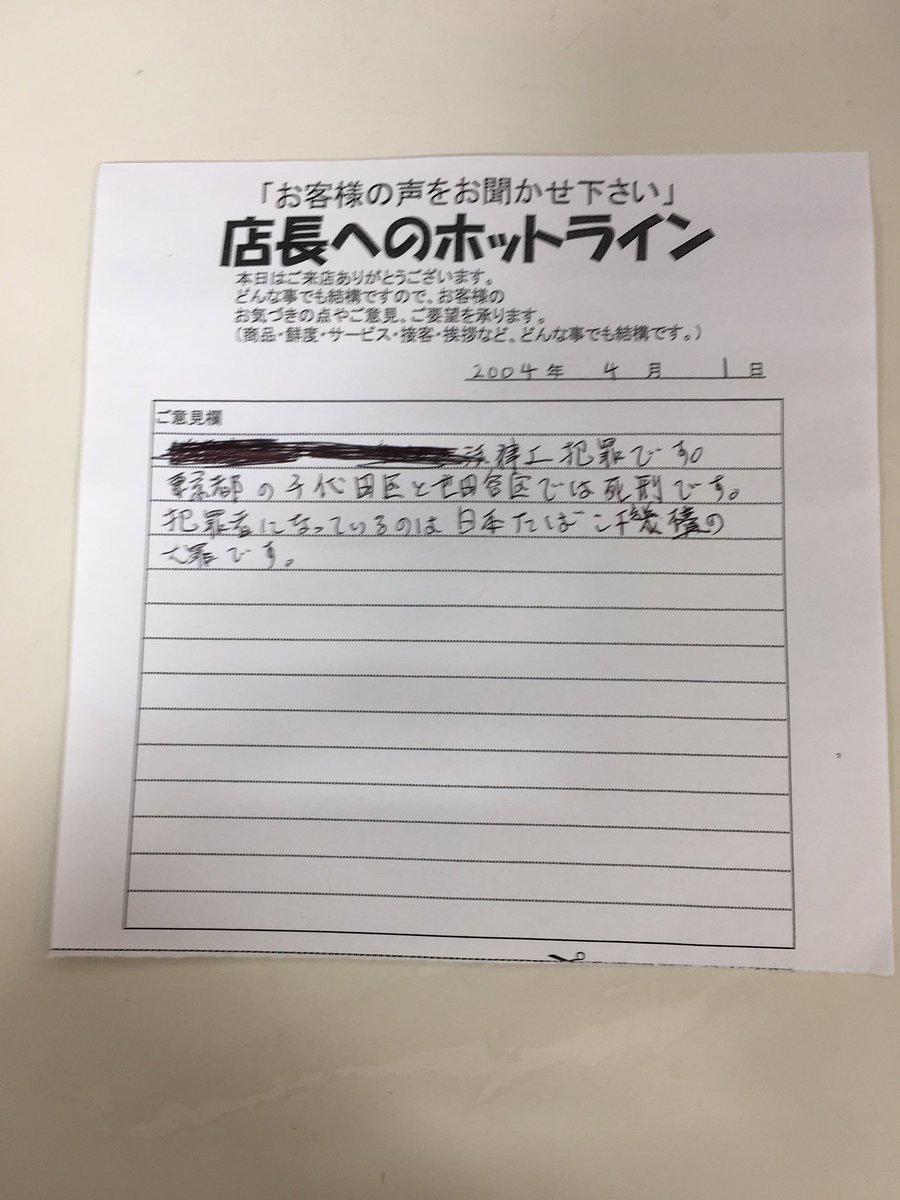 「お客様の声をお聞かせ下さい」
店長へのホットライン
本日はご来店ありがとうございます。
どんな事でも結構ですので、お客様の
お気づきの点やご意見、ご要望を承ります。
(商品・鮮度・サービス・接客・挨拶など、どんな事でも結構です。)
2004年 4月 1日
ご意見欄
法律工犯罪です。
東京都の千代田区と世田谷区では死刑です。
犯罪者になっているのは日本たばこ機構の
犬罪です。